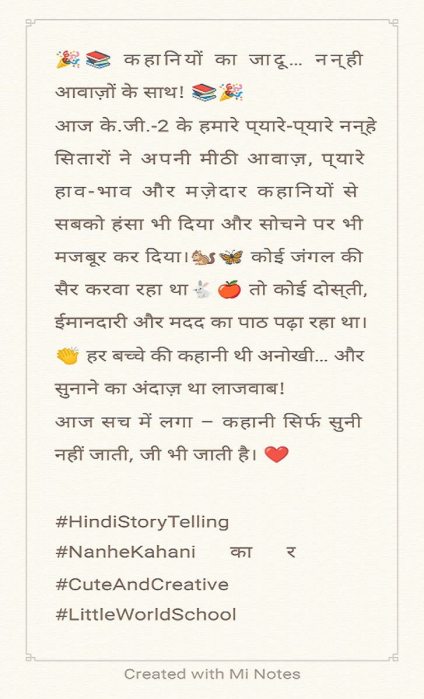 🎉📚 कहानियों का जादू… नन्ही
आवाज़ों के साथ! 📚🎉
आज के.जी.-2 के हमारे प्यारे-प्यारे नन्हे
सितारों ने अपनी मीठी आवाज़, प्यारे
हाव-भाव और मज़ेदार कहानियों से
सबको हंसा भी दिया और सोचने पर भी
मजबूर कर दिया।🐿️🦋 कोई जंगल की
सैर करवा रहा था🐇 🍎 तो कोई दोस्ती,
ईमानदारी और मदद का पाठ पढ़ा रहा था।
👏 हर बच्चे की कहानी थी अनोखी… और
सुनाने का अंदाज़ था लाजवाब!
आज सच में लगा – कहानी सिर्फ सुनी
नहीं जाती, जी भी जाती है। ❤️
#HindiStoryTelling
#NanheKahani का र
#CuteAndCreative
#LittleWorldSchool
Created with Mi Notes